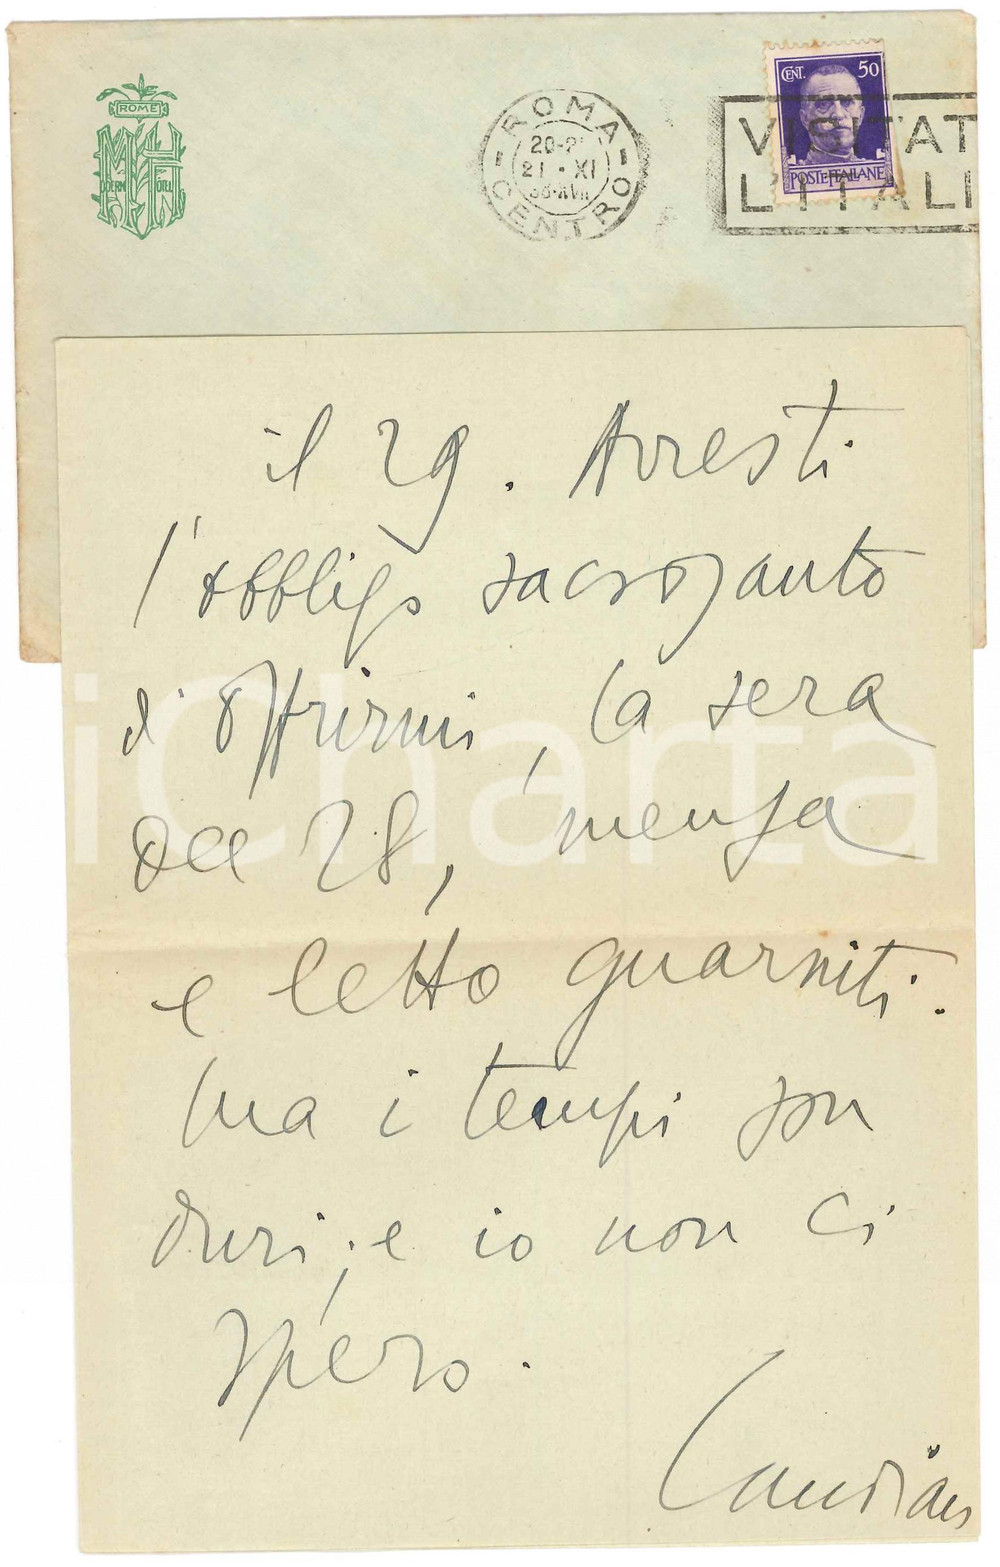 ROME
MODERN HOTEL
ROMA
CENTRO
21 · XI
VISITAT
L'ITALI
CENT. 50
POSTE ITALIANE
il 29. Avresti
l'obbligo sacrosanto
di offrirmi, la sera
del 28, mensa
e letto guarniti.
Ma i tempi son
duri; e io non ci
spero.
iCharta